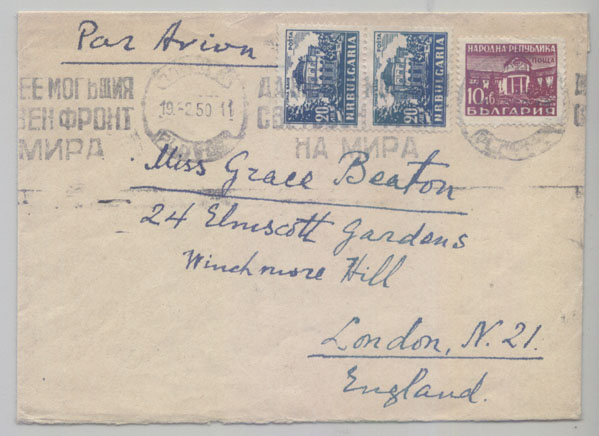 Par Avion
POSTA
20 ЛВ
NRBULGARIA
POSTA
20 ЛВ
NRBULGARIA
НАРОДНА РЕПУБЛИКА
ПОЩА
10 ЛВ
БЪЛГАРИЯ
ЕЕ МОГЪЩИЯ
ВЕН ФРОНТ
МИРА
19.-2.50.11
ДА
СВ
НА МИРА
Miss Grace Beaton
24 Elmscott Gardens
Winchmore Hill
London, N. 21.
England.